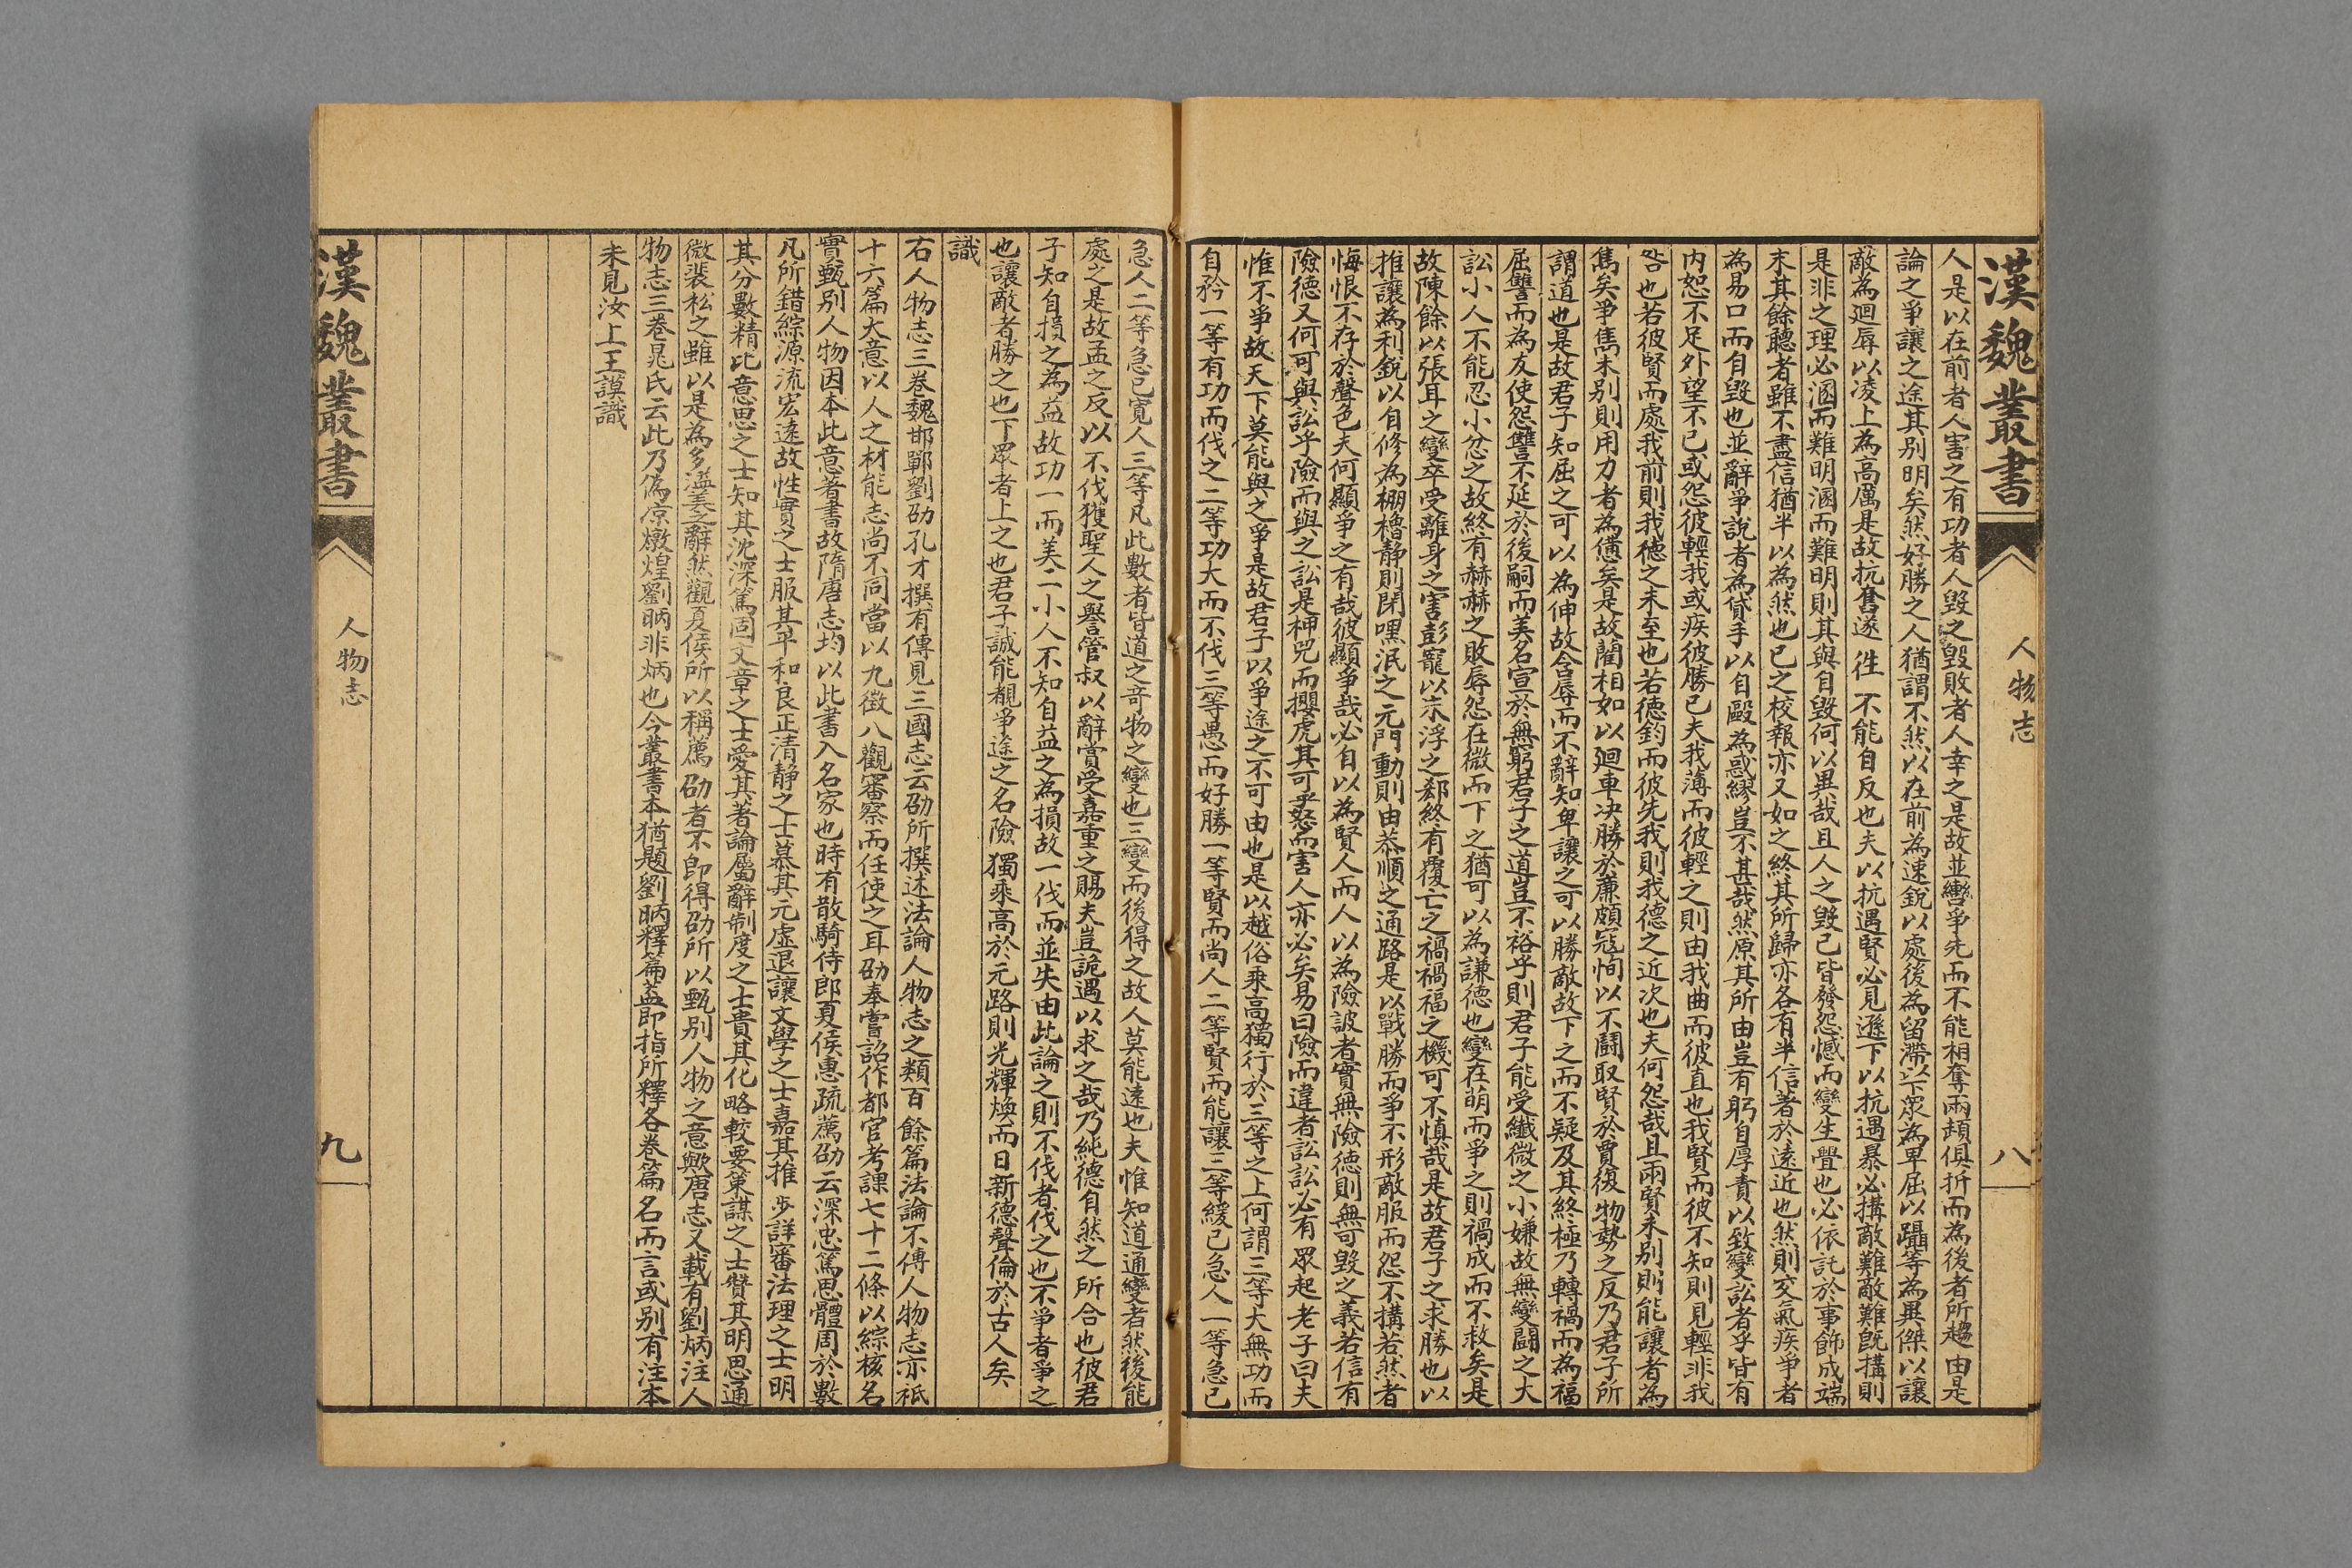 漢魏叢書
人物志
八
人是以在前者人害之有功者人毀之毀敗者人幸之是故並轡爭先而不能相奪兩頡俱折而為後者所趨由是
論之爭讓之途其別明矣然好勝之人猶謂不然以在前為速銳以處後為留滯以下眾為卑屈以躡等為異傑以讓
敵為迴辱以凌上為高厲是故抗奮遂往不能自反也夫以抗遇賢必見遜下以抗遇暴必搆敵難敵難既搆則
是非之理必溷而難明溷而難明則其與自毀何以異哉且人之毀己皆發怨憾而變生舋也必依託於事飾成端
末其餘聽者雖不盡信猶半以為然也己之校報亦又如之終其所歸亦各有半信著於遠近也然則交氣疾爭者
為易口而自毀也並辭爭說者為貸手以自毆為惑繆豈不甚哉然原其所由豈有躬自厚責以致變訟者乎皆有
內恕不足外望不已或怨彼輕我或疾彼勝己夫我薄而彼輕之則由我曲而彼直也我賢而彼不知則見輕非我
咎也若彼賢而處我前則我德之未至也若德鈞而彼先我則我德之近次也夫何怨哉且兩賢未別則能讓者為
雋矣爭雋未別則用力者為憊矣是故藺相如以迴車決勝於廉頗寇恂以不鬬取賢於賈復物勢之反乃君子所
謂道也是故君子知屈之可以為伸故含辱而不辭知卑讓之可以勝敵故下之而不疑及其終極乃轉禍而為福
屈讐而為友使怨讐不延於後嗣而美名宣於無窮君子之道豈不裕乎則君子能受纖微之小嫌故無變鬬之大
訟小人不能忍小忿之故終有赫赫之敗辱怨在微而下之猶可以為謙德也變在萌而爭之則禍成而不救矣是
故陳餘以張耳之變卒受離身之害彭寵以朱浮之郄終有覆亡之禍禍福之機可不慎哉是故君子之求勝也以
推讓為利銳以自修為棚櫓靜則閉嘿泯之元門動則由恭順之通路是以戰勝而爭不形敵服而怨不搆若然者
悔恨不存於聲色夫何顯爭之有哉彼顯爭哉必自以為賢人而人以為險詖者實無險德則無可毀之義若信有
險德又何可與訟乎險而與之訟是柙兕而攖虎其可乎怒而害人亦必矣易曰險而違者訟訟必有眾起老子曰夫
惟不爭故天下莫能與之爭是故君子以爭途之不可由也是以越俗乘高獨行於三等之上何謂三等大無功而
自矜一等有功而伐之二等功大而不伐三等愚而好勝一等賢而尚人二等賢而能讓三等緩己急人一等急己
急人二等急己寬人三等凡此數者皆道之竒物之變也三變而後得之故人莫能遠也夫惟知道通變者然後能
處之是故孟之反以不伐獲聖人之譽管叔以辭賞受嘉重之賜夫豈詭遇以求之哉乃純德自然之所合也彼君
子知自損之為益故功一而美二小人不知自益之為損故一伐而並失由此論之則不伐者伐之也不爭者爭之
也讓敵者勝之也下眾者上之也君子誠能覩爭途之名險獨乘高於元路則光輝煥而日新德聲倫於古人矣
識
右人物志三卷魏邯鄲劉劭孔才撰有傳見三國志云劭所撰述法論人物志之類百餘篇法論不傳人物志亦祗
十六篇大意以人之材能志尚不同當以九徵八觀審察而任使之耳劭奉嘗詔作都官考課七十二條以綜核名
實甄別人物因本此意著書故隋唐志均以此書入名家也時有散騎侍郎夏侯惠疏薦劭云深忠篤思體周於數
凡所錯綜源流宏遠故性實之士服其平和良正清靜之士慕其元虛退讓文學之士嘉其推步詳審法理之士明
其分數精比意思之士知其沈深篤固文章之士愛其著論屬辭制度之士貴其化略較要策謀之士贊其明思通
微裴松之雖以是為多溢美之辭然觀夏侯所以稱薦劭者不即得劭所以甄別人物之意歟唐志又載有劉炳注人
物志三卷晁氏云此乃偽凉燉煌劉昞非炳也今叢書本猶題劉昞釋篇葢即指所釋各卷篇名而言或別有注本
未見汝上王謨識
漢魏叢書
人物志
九